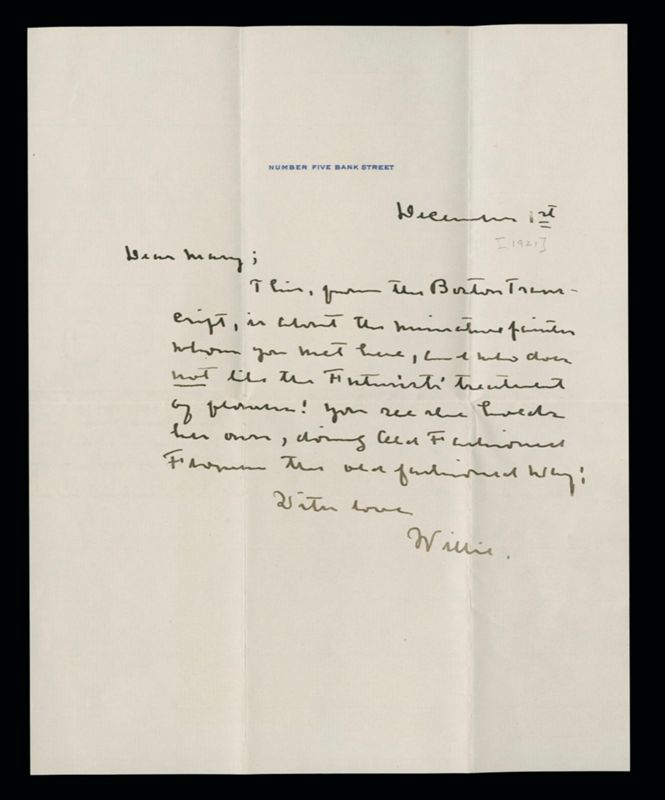 NUMBER FIVE BANK STREET
December 1st
[1921]
Dear Mary;
This, from the Boston Trans-
cript, is about the miniature painter
whom you met here, and who does
not like the Futurists' treatment
of flowers! You see she holds
her own, doing Old Fashioned
Flowers the old fashioned way;
With love
Willie.